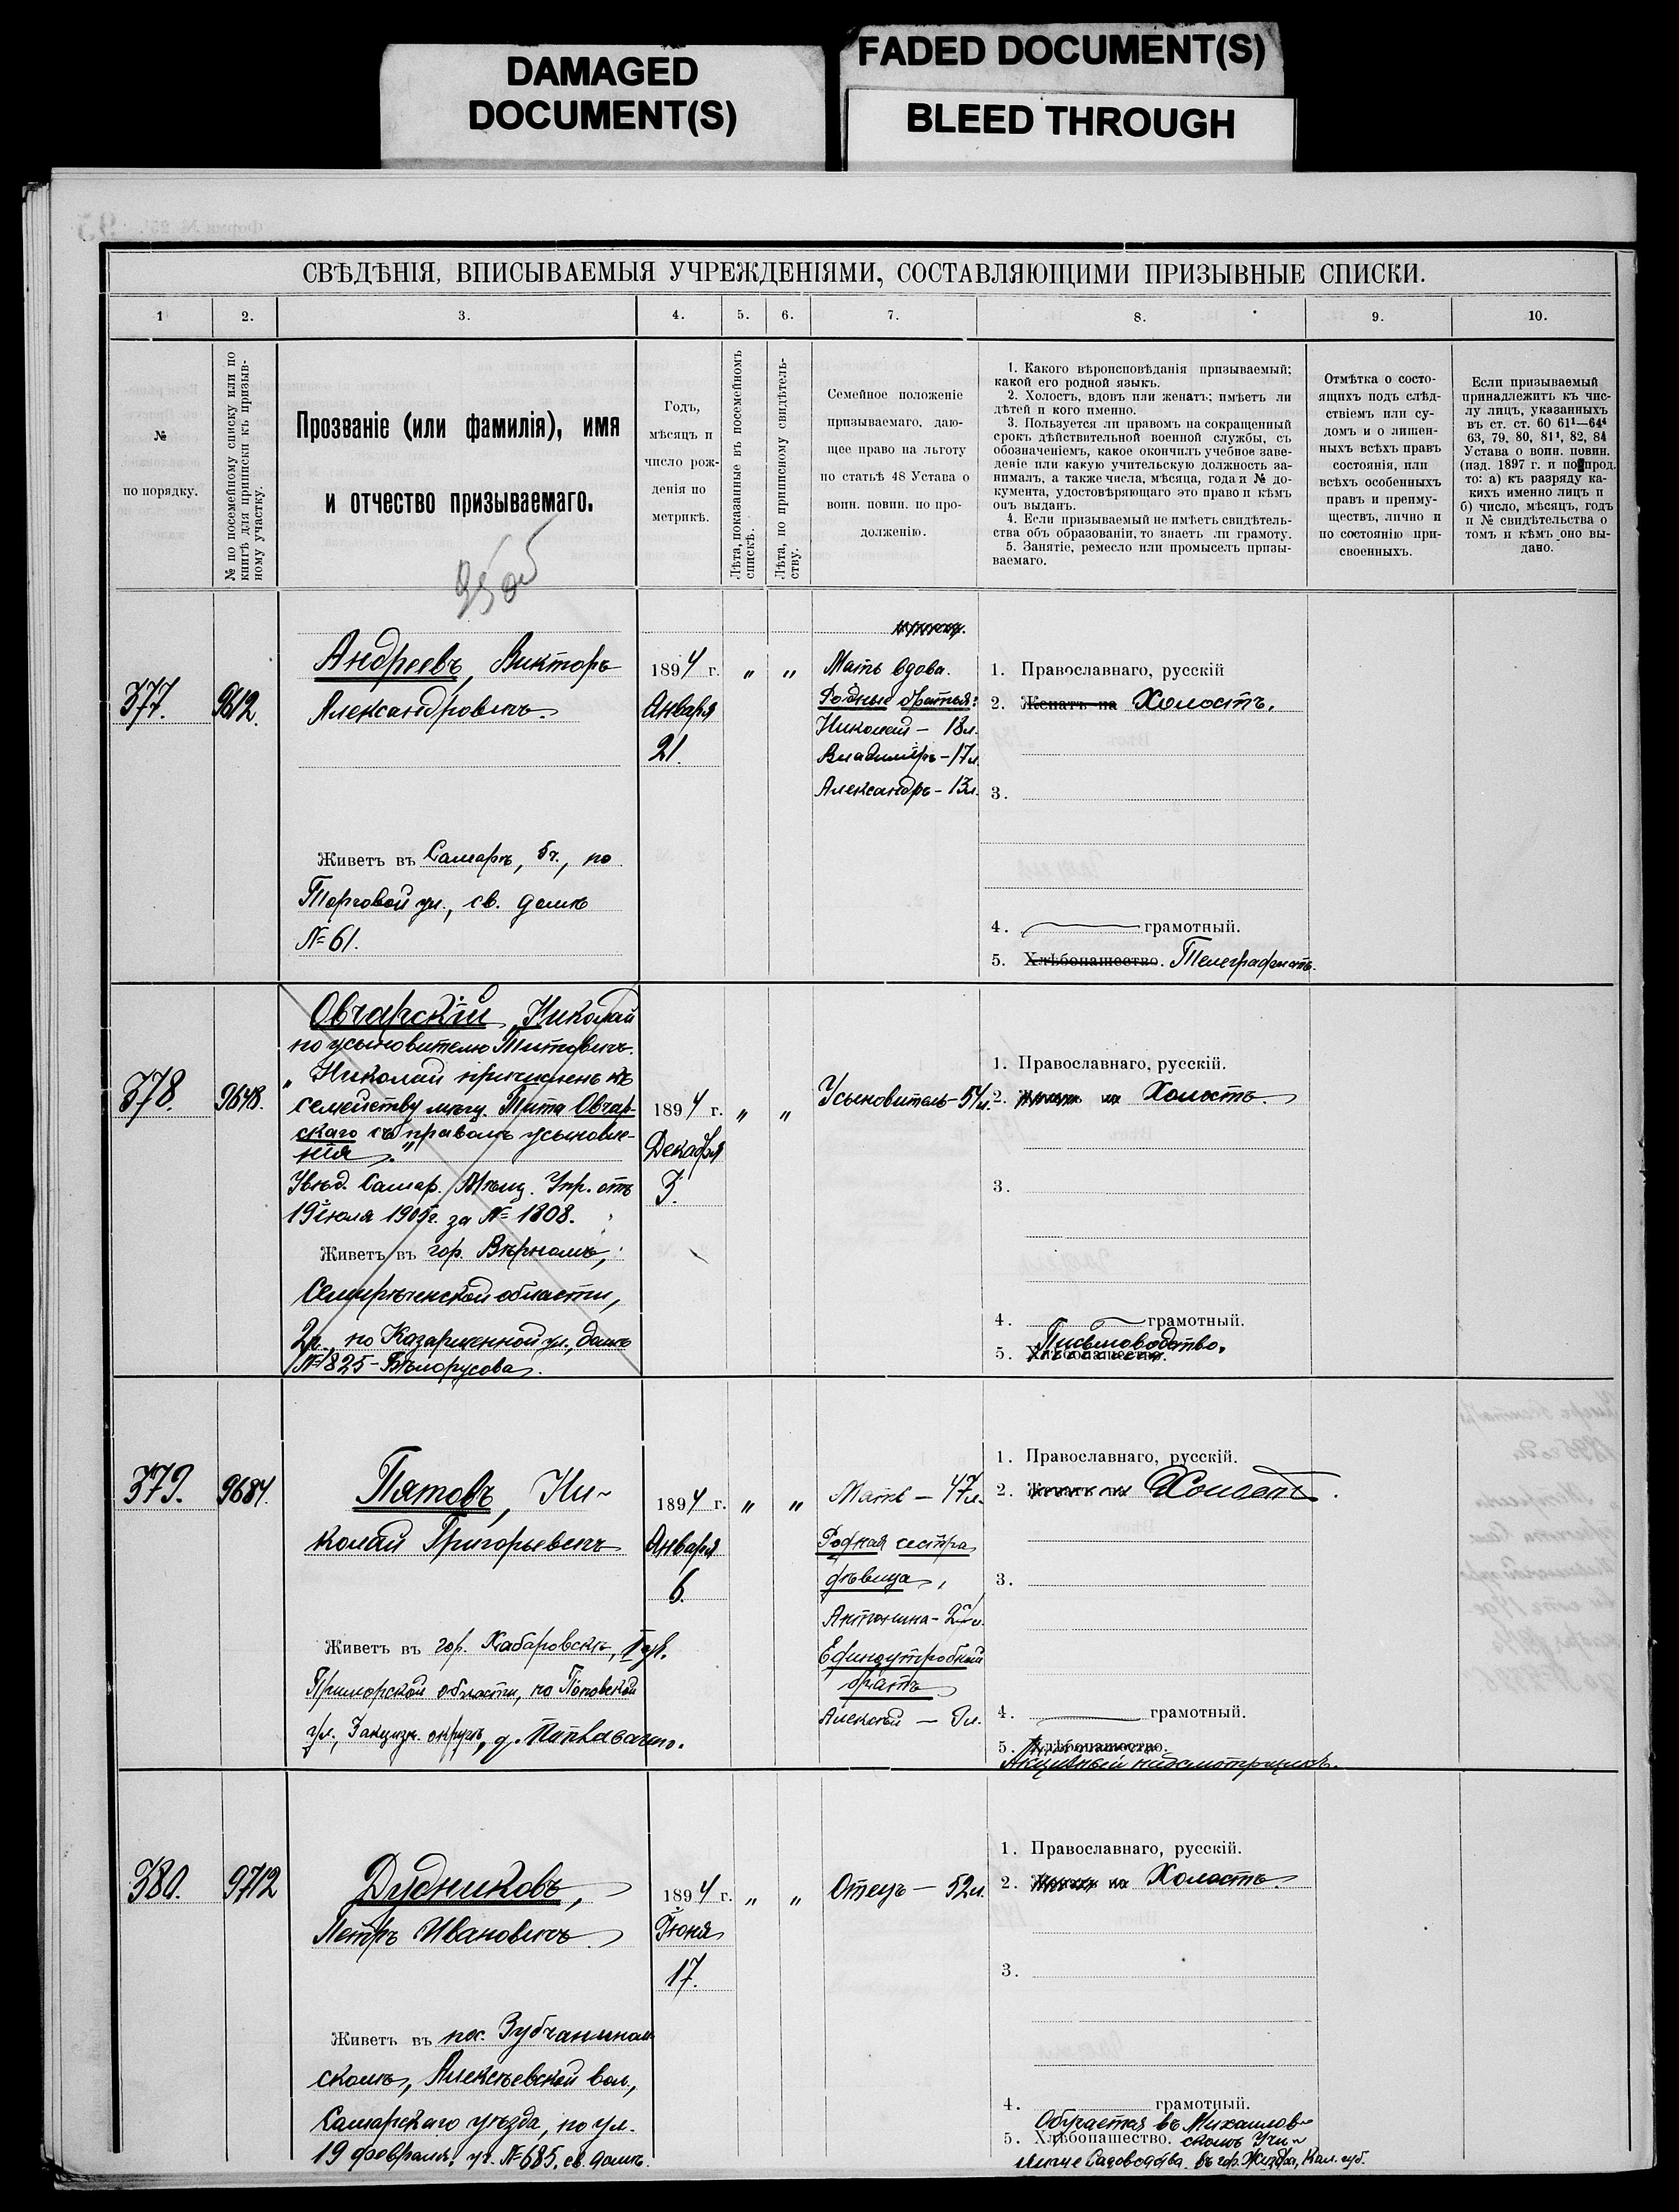 DAMAGED
DOCUMENT(S)
FADED DOCUMENT(S)
BLEED THROUGH
СВѢДѢНІЯ, ВПИСЫВАЕМЫЯ УЧРЕЖДЕНІЯМИ, СОСТАВЛЯЮЩИМИ ПРИЗЫВНЫЕ СПИСКИ.
1 2. 3. 4. 5. 6. 7. 8. 9. 10.
№
по порядку.
№ по посемейному списку или по
книгѣ для приписки къ призыв-
ному участку.
Прозваніе (или фамилія), имя
и отчество призываемаго.
Годъ,
мѣсяцъ и
число рож-
денія по
метрикѣ.
Лѣта, показанные въ посемейномъ
спискѣ.
Лѣта, по приписному свидѣтель-
ству.
Семейное положеніе
призываемаго, даю-
щее право на льготу
по статьѣ 48 Устава о
воин. повин. по про-
долженію.
1. Какого вѣроисповѣданія призываемый;
какой его родной языкъ.
2. Холостъ, вдовъ или женатъ; имѣетъ ли
дѣтей и кого именно.
3. Пользуется ли правомъ на сокращенный
срокъ дѣйствительной военной службы, съ
обозначеніемъ, какое окончилъ учебное заве-
деніе или какую учительскую должность за-
нималъ, а также числа, мѣсяца, года и № до-
кумента, удостовѣряющаго это право и кѣмъ
онъ выданъ.
4. Если призываемый не имѣетъ свидѣтель-
ства объ образованіи, то знаетъ ли грамоту.
5. Занятіе, ремесло или промыселъ призы-
ваемаго.
Отмѣтка о состо-
ящихъ подъ слѣд-
ствіемъ или су-
домъ и о лишен-
ныхъ всѣхъ правъ
состоянія, или
всѣхъ особенныхъ
правъ и преиму-
ществъ, лично и
по состоянію при-
своенныхъ.
Если призываемый
принадлежитъ къ чис-
лу лицъ, указанныхъ
въ ст. ст. 60 61¹—64⁴
63, 79, 80, 81¹, 82, 84
Устава о воин. повин.
(изд. 1897 г. и по прод.
то: а) къ разряду ка-
кихъ именно лицъ и
б) число, мѣсяцъ, годъ
и № свидѣтельства о
томъ и кѣмъ оно вы-
дано.
377.
9612.
Андреевъ, Викторъ
Александровичъ.
Живетъ въ Самарѣ, 5ч., по
Торговой ул., св. домъ
№ 61.
1894 г.
Января
21.
„ „
Мать вдова.
Родные братья:
Николай - 18л.
Владиміръ - 17л.
Александръ - 13л.
1. Православнаго, русскій
2. Женатъ на Холостъ.
3.
4. грамотный.
5. Хлѣбопашество. Телеграфистъ.
378.
9648.
Овчарскій, Николай
по усыновителю Титовичъ.
„Николай причисленъ къ
семейству мѣщ. Тита Овчар-
скаго съ правомъ усыновле-
нія."
Увѣд. Самар. Мѣщ. Упр. отъ
19 іюля 1905г. за № 1808.
Живетъ въ гор. Вѣрномъ,
Семирѣченской области,
2 ч., по Казарменной ул., домъ
№ 825 - Бѣлорусова.
1894 г.
Декабря
3.
„ „
Усыновитель - 54л.
1. Православнаго, русскій.
2. на Холостъ.
3.
4. грамотный.
Письмоводство.
5. Хлѣбопашество.
379.
9684.
Пятовъ, Ни-
колай Григорьевичъ
Живетъ въ гор. Хабаровскѣ,
Приморской области, по Поповской
ул., Закцизн. округъ, д.
1894 г.
Января
6.
„ „
Мать - 47л.
Родная сестра
дѣвица,
Антонина -
Единоутробный
братъ
Алексѣй -
1. Православнаго, русскій.
2. Холостъ.
3.
4. грамотный.
5. Хлѣбопашество.
Акцизный надсмотрщикъ.
380.
9712
Дудниковъ,
Петръ Ивановичъ.
Живетъ въ пос. Зубчанинов-
скомъ, Алексѣевской вол.,
Самарскаго уѣзда, по ул.
19 февраля, уч. № 685, св. домъ.
1894 г.
Іюня
17.
„ „
Отецъ - 52л.
1. Православнаго, русскій.
2. на Холостъ.
3.
4. грамотный.
Обучается въ Михайлов-
5. Хлѣбопашество. скомъ Учи-
лищѣ Садоводства въ гор. Жиздра, Кал. губ.